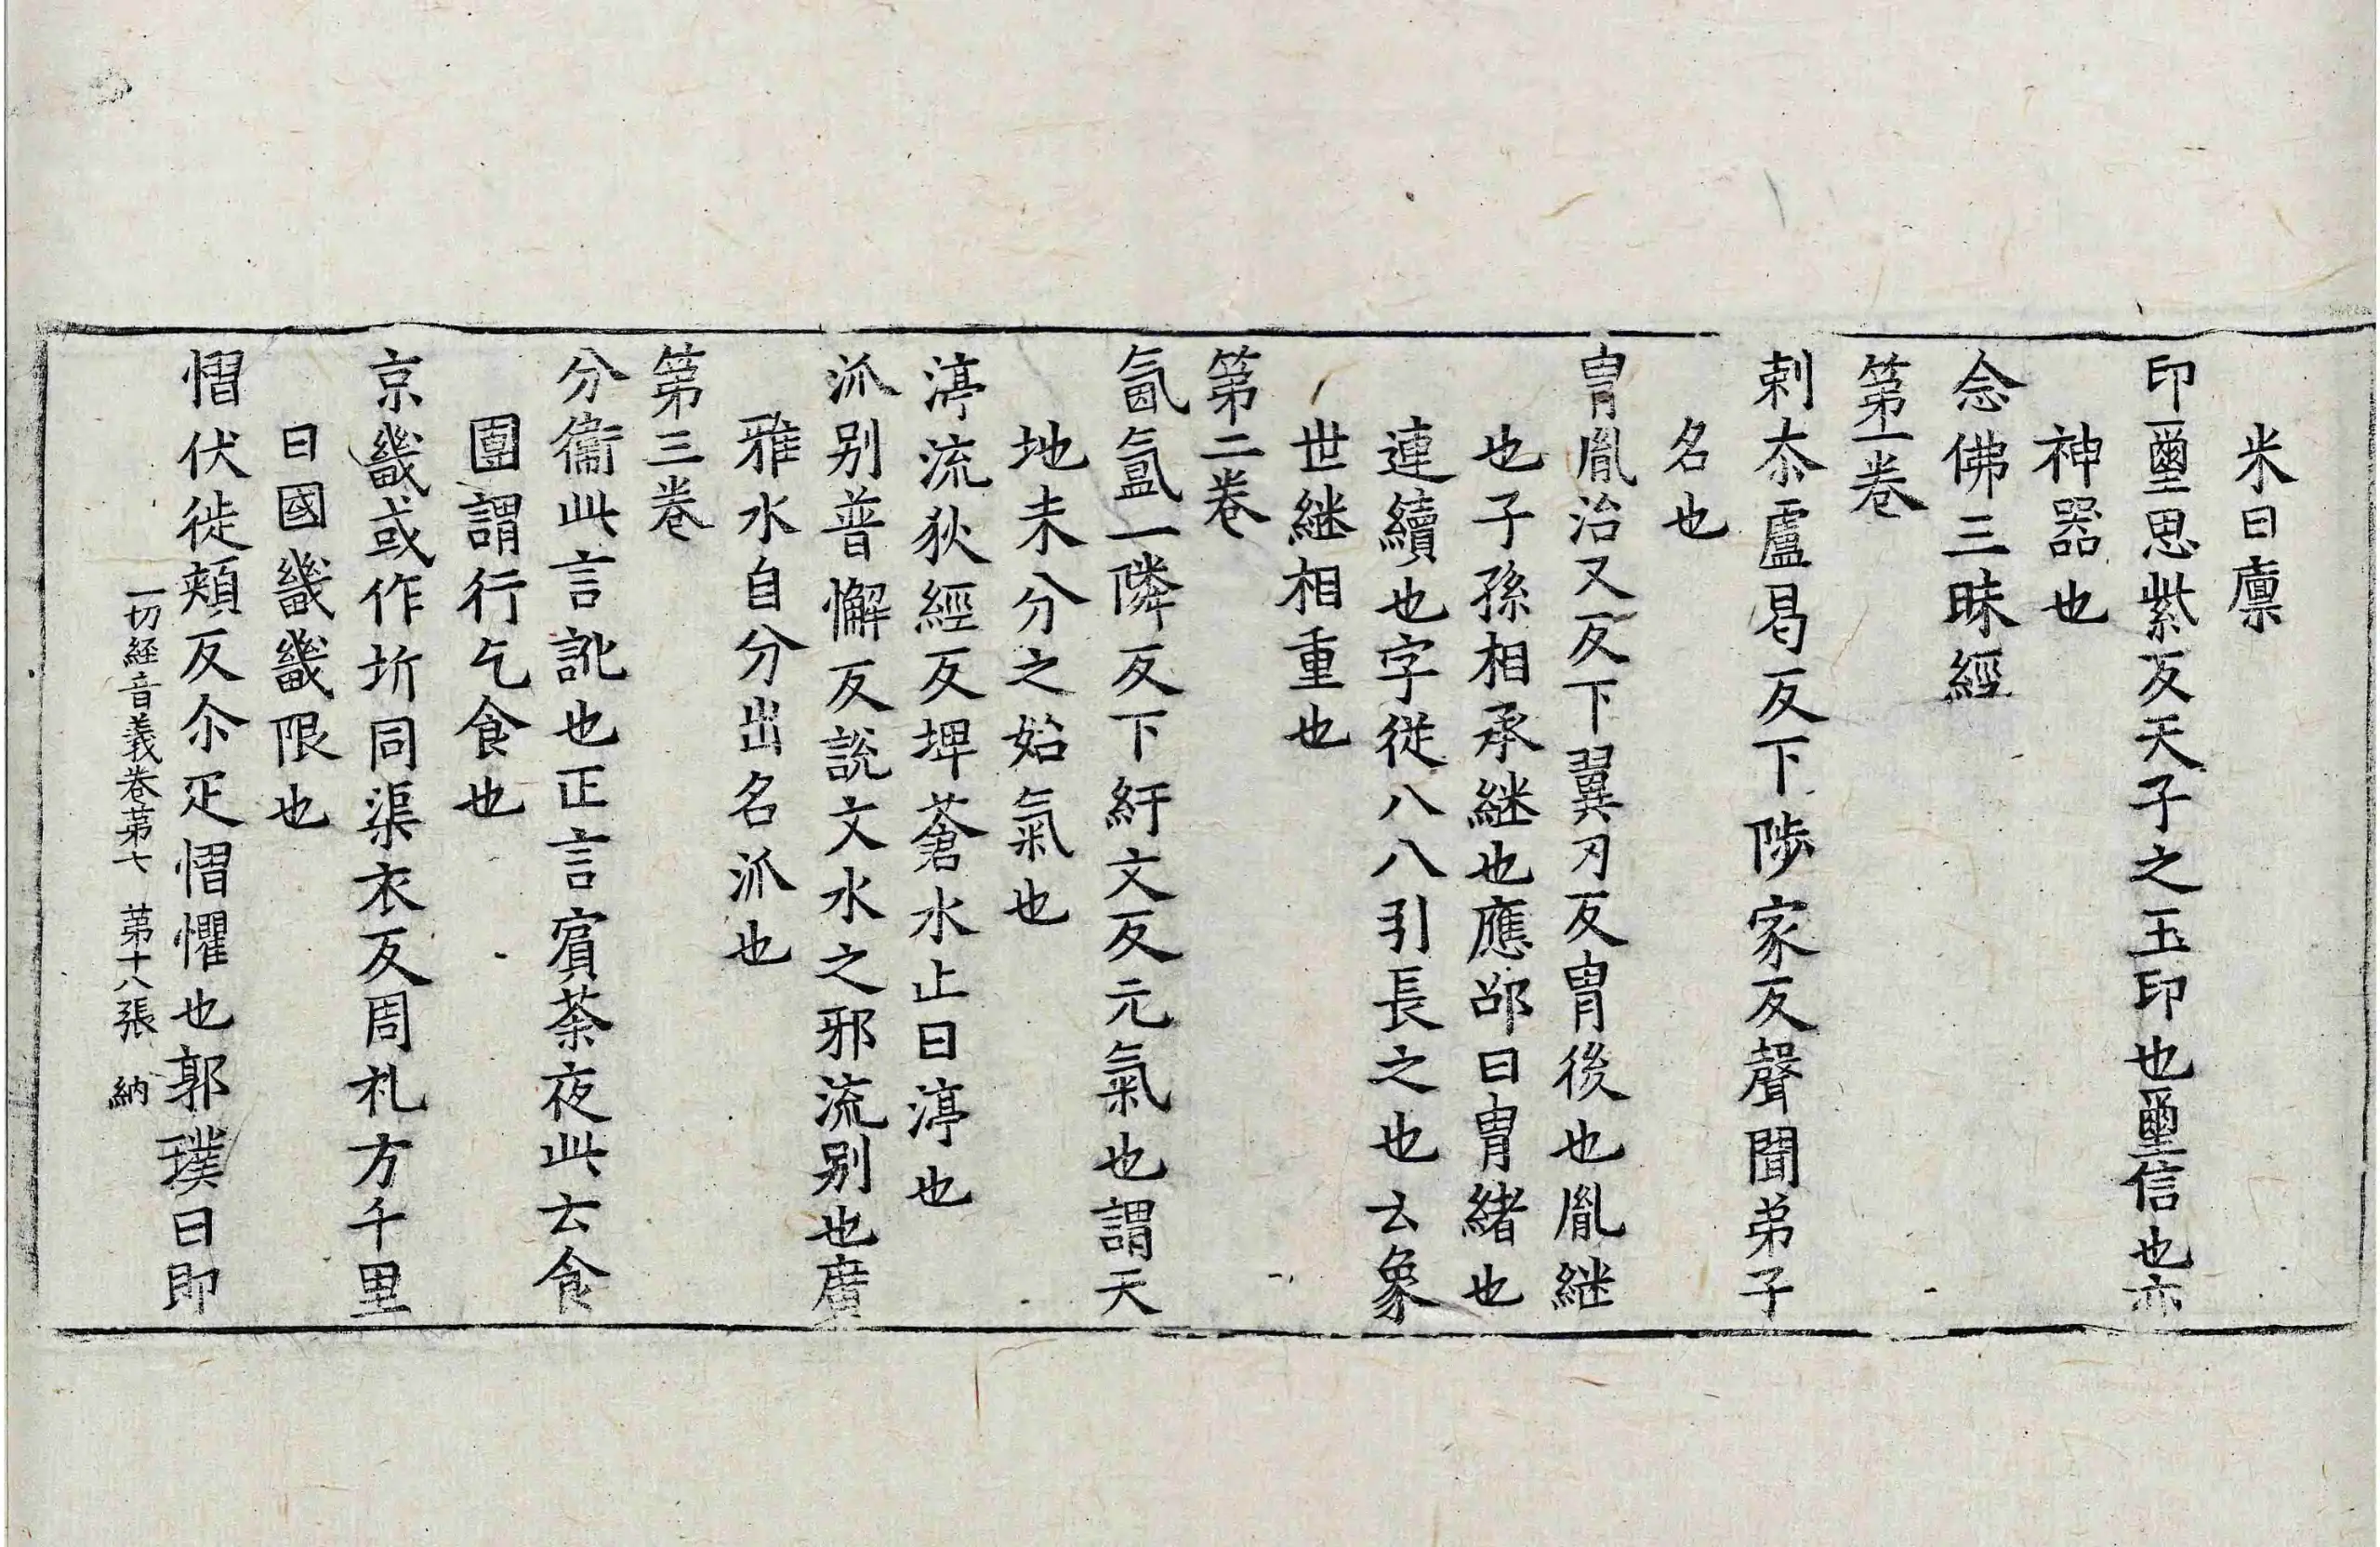 米曰廩
印璽思紫反天子之玉印也璽信也亦
神器也
念佛三昧經
第一卷
剌夲盧曷反下陟家反聲聞弟子
名也
冑胤治又反下翼刃反冑後也胤継
也子孫相承継也應邵曰冑緒也
連續也字從八八引長之也幺象
世継相重也
第二卷
氤氳一隣反下紆文反元氣也謂天
地未分之始氣也
渟流狄經反埤蒼水止曰渟也
派别普懈反說文水之邪流别也廣
雅水自分出名派也
第三卷
分衞此言訛也正言賔荼夜此云食
團謂行乞食也
京畿或作圻同渠衣反周礼方千里
曰國畿畿限也
慴伏徙頰反尒疋慴懼也郭璞曰即
一切経音義卷第七 第十八張 納